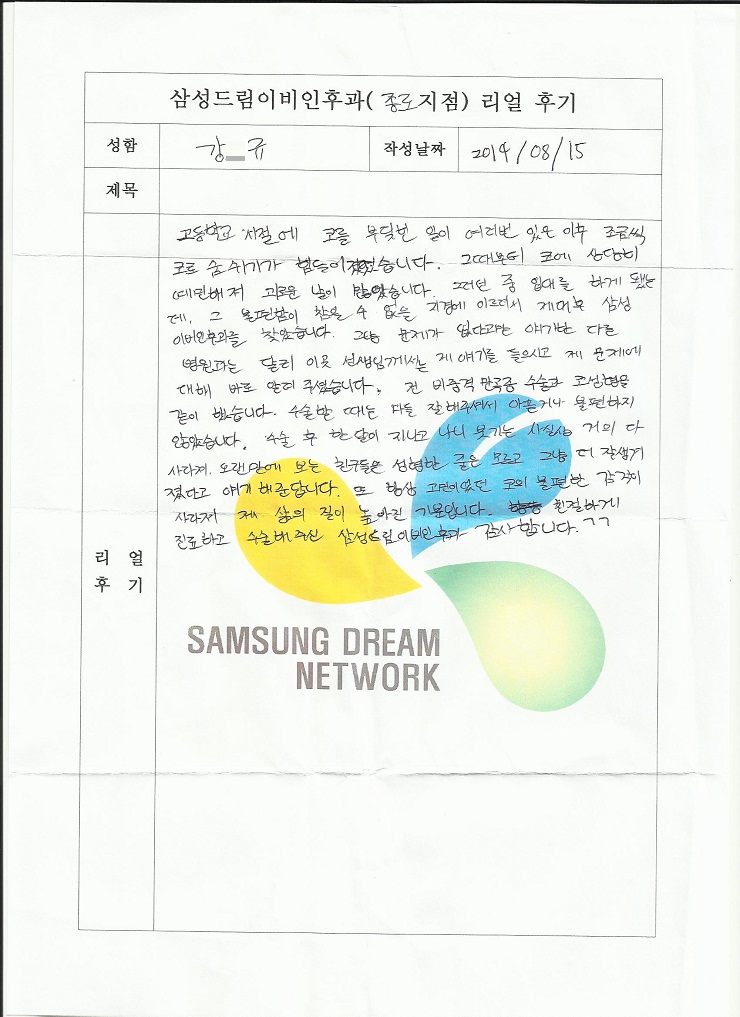 삼성드림이비인후과(종로지점) 리얼 후기
성함 강 규 작성날짜 2014/08/15
제목
고등학교 시절에 코를 부딪힌 일이 여러번 있은 이후 조금씩
코로 숨쉬기가 힘들어졌었습니다. 그때부터 코에 상당히
예민해져 괴로운 날이 많았습니다. 그러던 중 입대를 하게 됐는
데, 그 불편함이 참을 수 없을 지경에 이르러서 제대후 삼성
이비인후과를 찾았습니다. 그냥 문제가 없다고만 얘기한 다른
병원과는 달리 이곳 선생님께서는 제 얘기를 들으시고 제 문제에
대해 바로 알려 주셨습니다. 전 비중격 만곡증 수술과 코성형을
같이 했습니다. 수술할 때는 다들 잘해주셔서 아프거나 불편하지
않았습니다. 수술 후 한달이 지나고 나니 붓기는 사실상 거의 다
사라져, 오랜만에 보는 친구들은 성형한 줄은 모르고 그냥 더 잘생겨
졌다고 얘기해준답니다. 또 항상 고민이었던 코의 불편한 감각이
사라져 제 삶의 질이 높아진 기분입니다. 친절하게
진료하고 수술해주신 삼성드림이비인후과 감사합니다. ㄱㄱ
리 얼
후 기
SAMSUNG DREAM
NETWORK